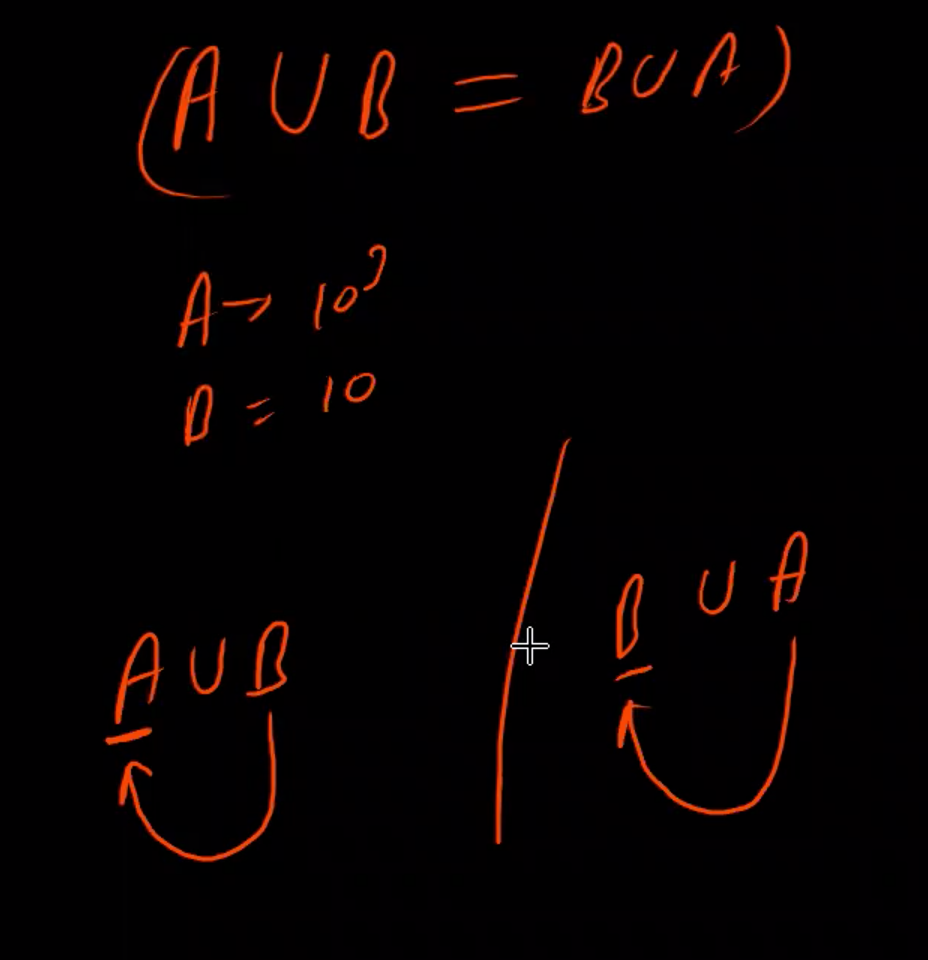 (A ∪ B = B ∪ A)
A → 10³
B = 10
A ∪ B
B ∪ A